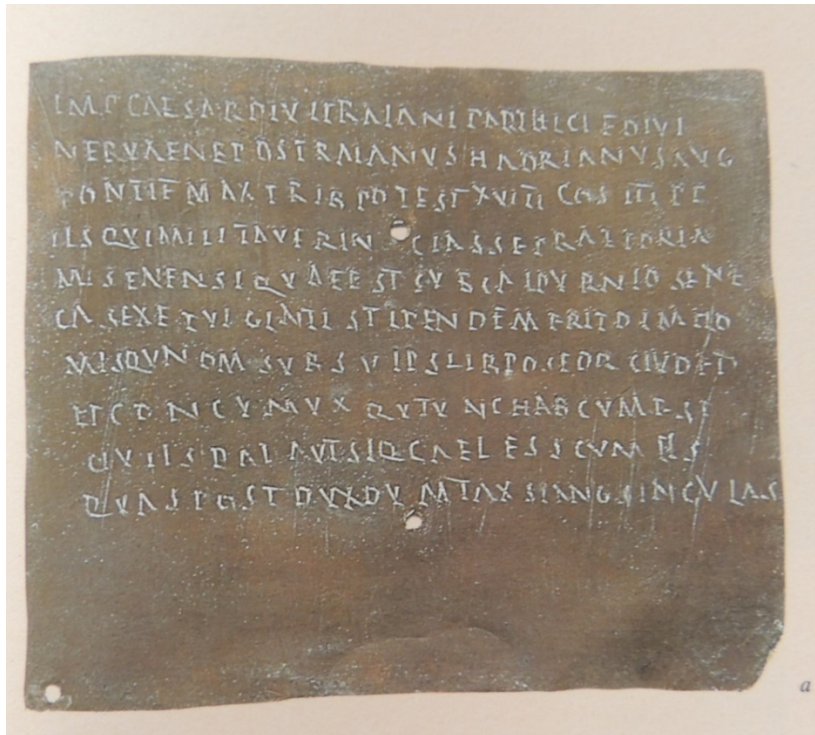 IMP CAESAR DIVI TRAIANI PARTHICI F DIVI
NERVAE NEPOS TRAIANVS HADRIANVS AVG
PONTIF MAX TRIB POTEST XVIII COS III P P
IIS QVI MILITAVER IN CLASSE PRAETORIA
MISENENSI QVAE EST SVB CALPVRNIO SENE
CA SEX ET VIGINTI STIPEND EMERIT DIM HO
MIS QVN OM SVBS VIIPS LIB POSEOR CIVDED
ET CON CVM VX QV TVNC HAB CVM EST
CIV IIS D AVT SIQ CAELES S CVM IIS
QVAS POST DVX DVMTAX SIANG SINGVLAS
a